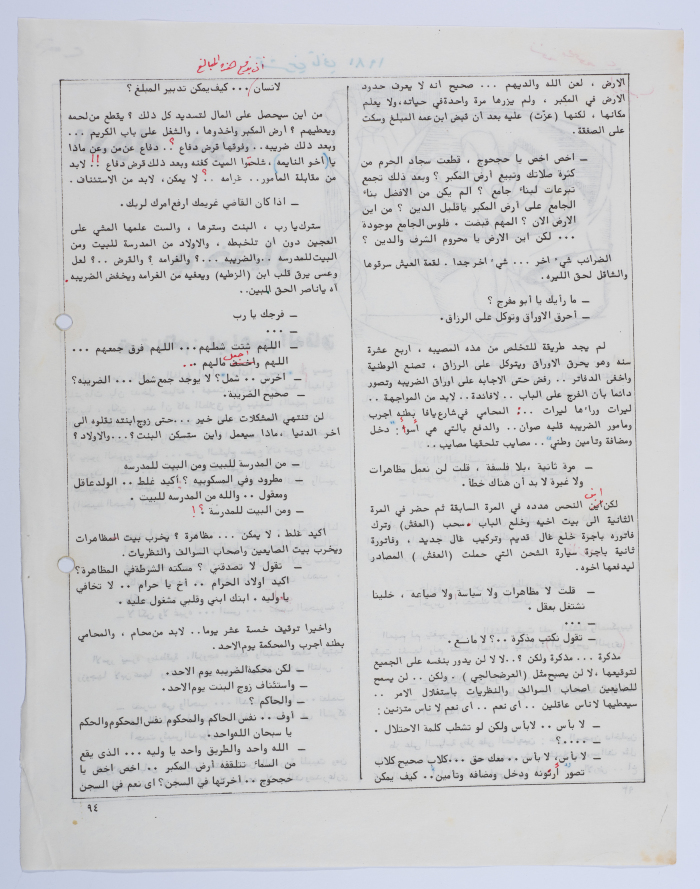 الارض ، لعن الله والديهم ... صحيح أنه لا يعرف حدود
الارض في المكبر ، ولم يزرها مرة واحدة في حياته، ولا يعلم
مكانها ، لكنها (عزّت) عليه بعد أن قبض ابن عمه المبلغ وسكت
على الصفقة .
ــ اخص اخص يا حجحوج ، قطعت سجاد الحرم من
كثرة صلاتك وتبيع ارض المكبر ؟ وبعد ذلك تجمع
تبرعات لبناء جامع ؟ الم يكن من الافضل بناء
الجامع على ارض المكبر باقليل الدين ؟ من اين
الارض الآن ؟ المهم قبضت ، فلوس الجامع موجودة
... لكن اين الارض يا محروم الشرف والدين ؟
الضرائب شيء آخر ... شيء آخر جدا . لقمة العيش سرقوها
والشاقل لحق الليره .
ــ ما رأيك يا أبو مفرح ؟
ــ أحرق الاوراق وتوكل على الرزاق .
لم يجد طريقة للتخلص من هذه المصيبه ، اربع عشرة
سنه وهو يحرق الاوراق ويتوكل على الرزاق ، تصنع الوطنية
واخفى الدفاتر .. رفض حتى الاجابه على اوراق الضريبه وتصور
دائما بأن الفرج على الباب .. لافائدة .. لابد من المواجهة ..
ليرات وراءها ليرات .. المحامي في شارع يافا بطنه اجرب
ومامور الضريبه قلبه صوان .. والدفع بالتي هي أسوأ : "دخل
ومضافة وتامين وطني" .. مصايب تلحقها مصايب ..
ــ مرة ثانية ، بلا فلسفة ، قلت لن نعمل مظاهرات
ولا غيرة لا بد أن هناك خطأ .
ابن
لكن ابن النحس هدده في المرة السابقة ثم حضر في المرة
الثانية الى بيت اخيه وخلع الباب . سحب (العفش) وترك
فاتوره باجرة خلع غال قديم وتركيب غال جديد ، وفاتورة
ثانية باجرة سيارة الشحن التي حملت (العفش) المصادر
ليدفعها اخوه .
ــ قلت لا مظاهرات ولا سياسة ولا صياعه ، خلينا
نشتغل بعقل .
ــ ...
ــ نقول نكتب مذكرة ..؟ لا مانع .
مذكرة ... مذكرة ولكن ؟ .. لا لا لن يدور بنفسه على الجميع
لتوقيعها ، لا لن يصبح مثل (العرضحالجي) . ولكن .. لن يسمح
للصايعين اصحاب السوالف والنظريات باستغلال الامر ..
سيعطيها لاناس عاقلين .. اى نعم .. اى نعم لا ناس متزنين :
ــ لا بأس .. لابأس ولكن لو تشطب كلمة الاحتلال .
ــ ....؟
ــ لا بأس، لا بأس .. معك حق ... كلاب صحيح كلاب
تصور "أرنونه ودخل ومضافه وتامين" .. كيف يمكن
أن يدفع هذه المبالغ
لانسان ... كيف يمكن تدبير المبلغ ؟
من اين سيحصل على المال لتسديد كل ذلك ؟ يقطع من لحمه
ويعطيهم ؟ أرض المكبر واخذوها ، والشغل على باب الكريم ...
وبعد ذلك ضريبه .. وفوقها قرض دفاع ؟ .. دفاع عن من وعن ماذا
يا (أخو النايعه) ، شلحوا الميت كفنه وبعد ذلك قرض دفاع !! لابد
من مقابلة المأمور .. غرامه ..؟ لا يمكن، لابد من الاستئناف .
ــ اذا كان القاضي غريمك ارفع امرك لربك .
سترك يا رب ، البنت وسترها ، والست علمها المشي على
العجين دون أن تلخبطه ، والاولاد من المدرسة للبيت ومن
البيت للمدرسه .. والضريبه ...؟ والغرامه ؟ والقرض ..؟ لعل
وعسى يرق قلب ابن (الزطيه) ويعفيه من الغرامه ويخفض الضريبه .
أه ياناصر الحق المبين ..
ــ فرجك يا رب
ــ ...
ــ اللهم شتت شملهم ... اللهم فرق جمعهم ...
اللهم واخسف مالهم ..
ــ اخرس .. شمل ؟ لا يوجد جمع شمل ... الضريبه؟
ــ صحيح الضريبه .
لن تنتهي المشكلات على خير ... حتى زوج ابنته نقلوه الى
آخر الدنيا ، ماذا سيعمل واين ستسكن البنت ؟ ... والاولاد ؟
ــ من المدرسة للبيت ومن البيت للمدرسه
ــ مطرود وفي المسكوبيه ؟ أكيد غلط .. الولد عاقل
ومعقول .. والله من المدرسه للبيت .
ــ ومن البيت للمدرسة . ؟!
أكيد غلط ، لا يمكن ... مظاهرة ؟ يخرب بيت المظاهرات
ويخرب بيت الصايعين واصحاب السوالف والنظريات .
ــ نقول لا تصدقني ؟ مسكته الشرطة في المظاهرة ؟
أكيد اولاد الحرام .. أخ يا حرام .. لا تخافي
يا وليه ، ابنك ابني وقلبي مشغول عليه .
واخيرا توقيف خمسة عشر يوما .. لابد من محام ، والمحامي
بطنه اجرب والمحكمة يوم الاحد .
ــ لكن محكمة الضريبه يوم الاحد .
ــ واستئناف زوج البنت يوم الاحد .
ــ والحاكم ؟
ــ أوف .. نفس الحاكم والمحكوم نفس المحكوم والحكم
يا سبحان الله واحد .
ــ الله واحد والطريق واحد يا وليه ... الذى يقع
من السماء تتلقفه أرض المكبر .. اخص اخص يا
حجحوج .. آخرتها في السجن؟ اى نعم في السجن
٩٤